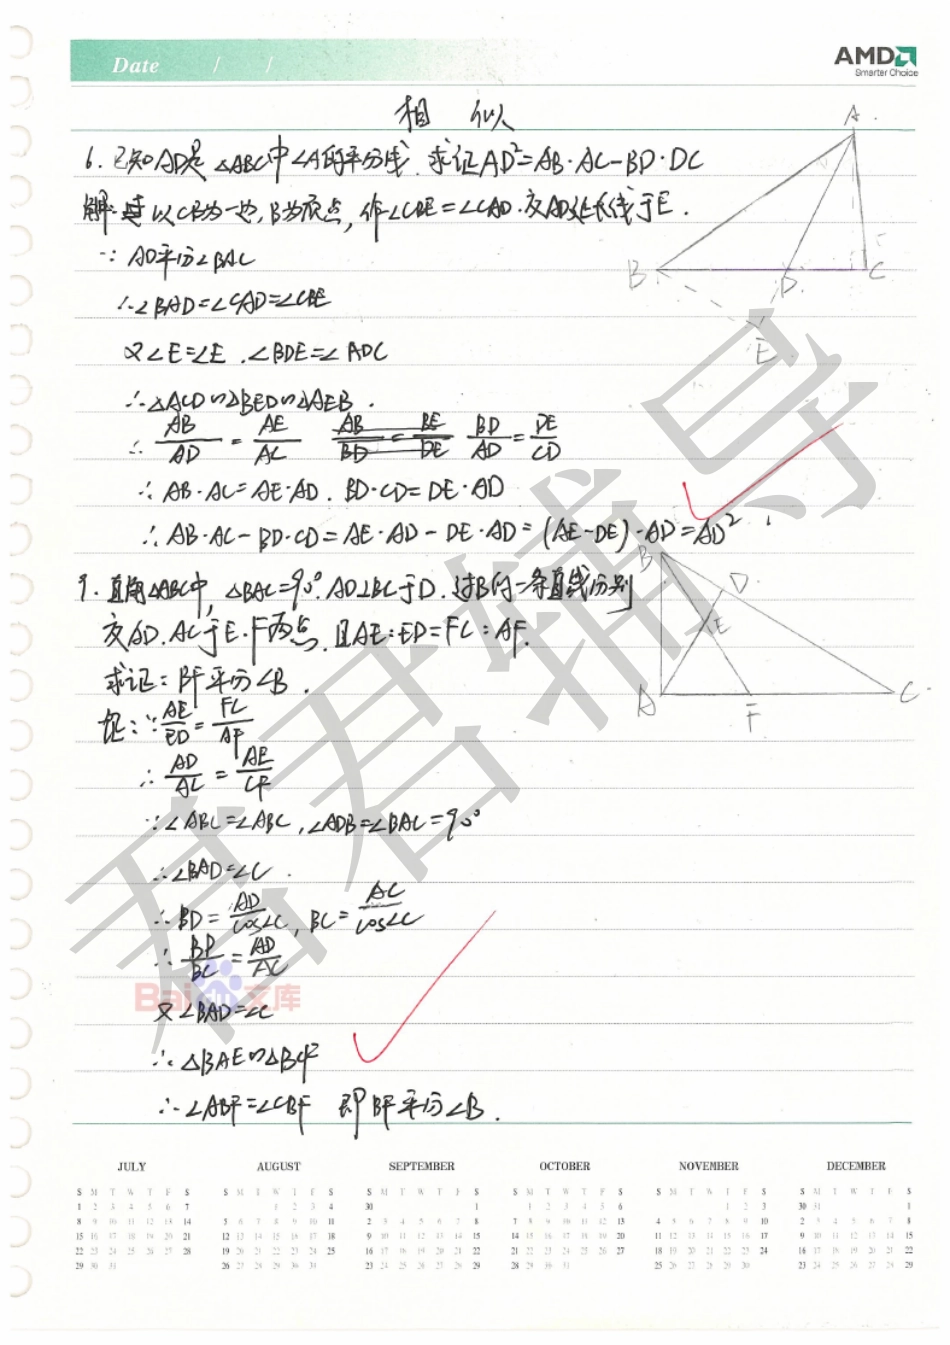 Date / /
AMD
Smarter Choice
相 似
6.已知AD是△ABC中∠A的平分线.求证AD²=AB·AC-BD·DC
解:以CB为一边,B为顶点,作∠CBE=∠CAD.交AD延长线于E.
∵ AD平分∠BAC
∴∠BAD=∠CAD=∠CBE
又∠E=∠E.∠BDE=∠ADC
∴△ACD∽△BED∽△AEB.
∴ AB/AD = AE/AC AB/BD = BE/DE BD/AD = DE/CD
∴ AB·AC=AE·AD. BD·CD=DE·AD
∴ AB·AC-BD·CD=AE·AD-DE·AD=(AE-DE)·AD=AD²
9.直角△ABC中,△BAC=90°.AD⊥BC于D.过B的一条直线分别
交AD.AC于E.F两点.且AE:ED=FC:AF.
求证:BF平分∠B.
证:∵ AE/ED = FC/AF
∴ AD/AC = AE/CF
∵∠ABC=∠ABC,∠ADB=∠BAC=90°
∴∠BAD=∠C.
∴BD= AD/cos∠C, BC= AC/cos∠C
∴ BD/BC = AD/AC
又∠BAD=∠C
∴△BAE∽△BCF
∴∠ABF=∠CBF 即BF平分∠B.
A
B
D
C
E
B
D
E
A
F
C
君君辅导
Bai 文库
JULY AUGUST SEPTEMBER OCTOBER NOVEMBER DECEMBER